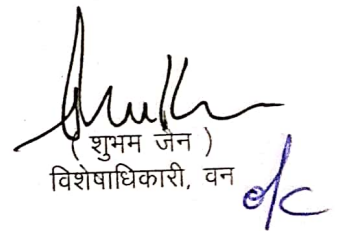 ( शुभम जैन )
विशेषाधिकारी, वन
o/c